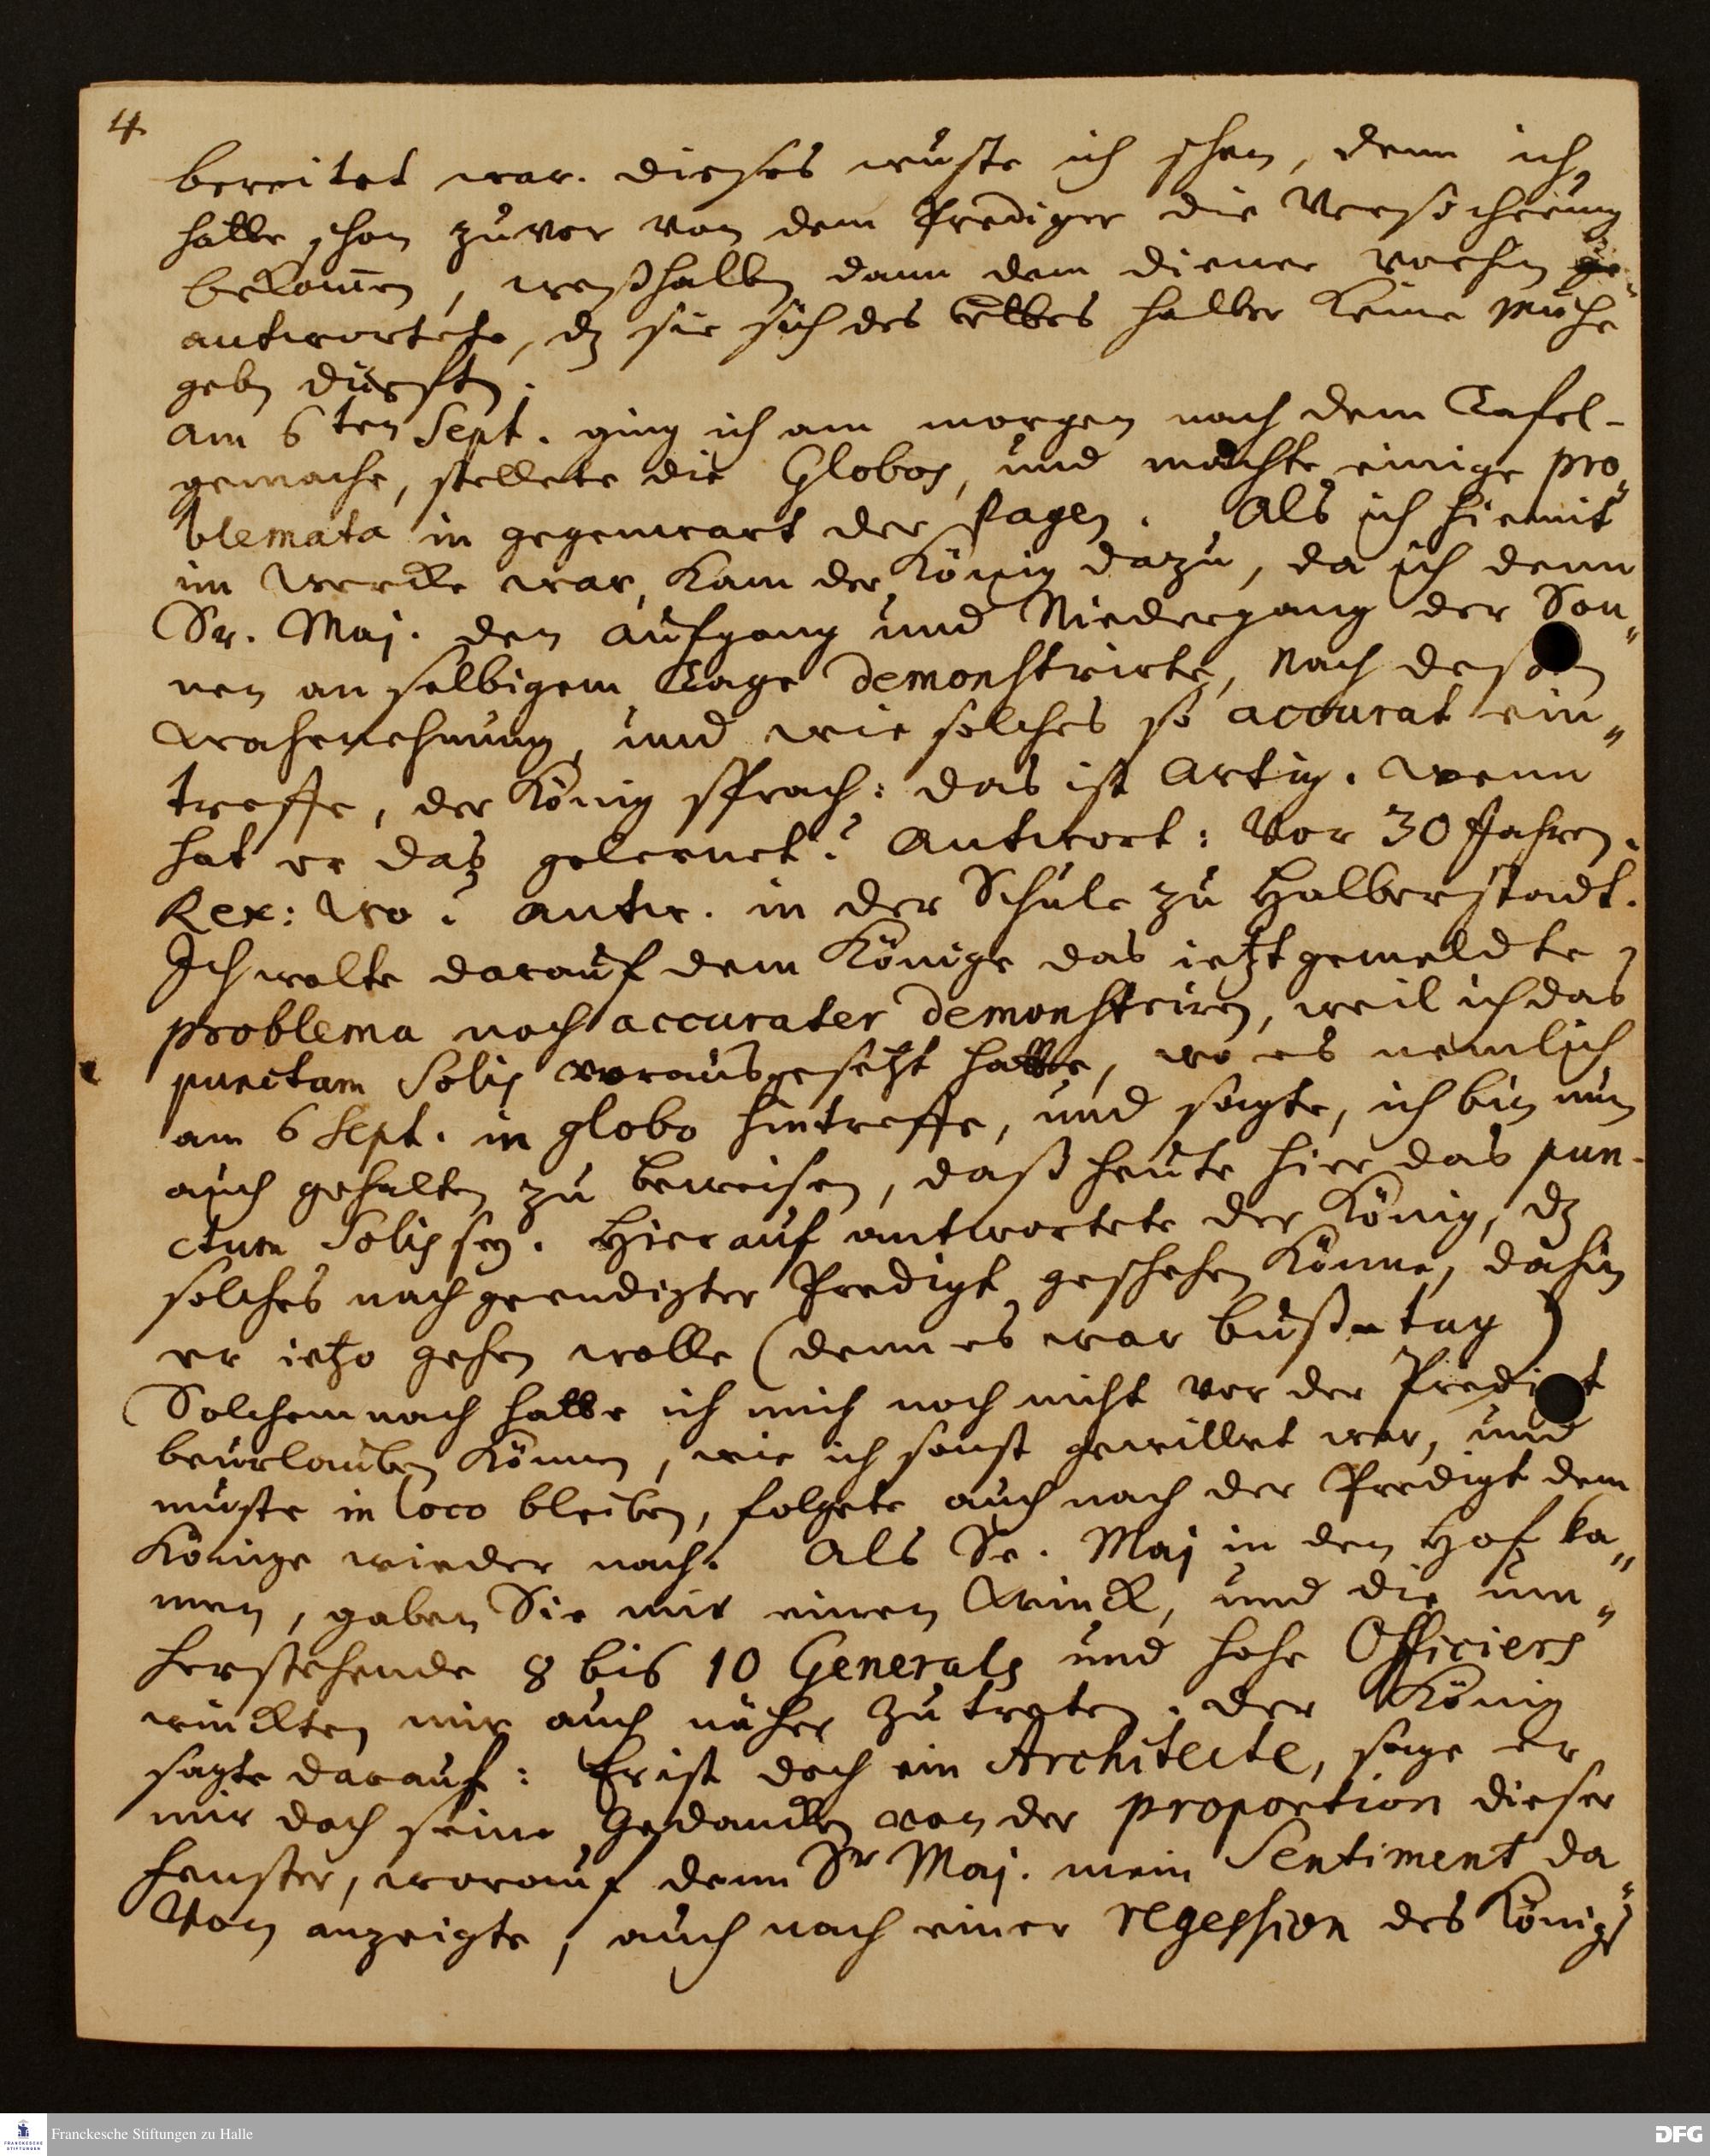 4.
bereitet war. dieses wuste ich schon, denn ich
hatte schon zuvor von dem Prediger die Versicherung
bekom̅en, weßhalben dann dem diener vorhin ge„
antwortete, dz sie sich des bettes halber keine Mühe
geben dürften.
Am 6ten Sept. ging ich am morgen nach dem Tafel-
gemache, stellete die Globos, und machte einige pro„
blemata in gegenwart der Pagen. Als ich hiemit
im Wercke war, kam der König dazu, da ich denn
Sr. Maj. den Aufgang und Niedergang der Son„
nen an selbigem Tage demonstrirte, Nach deßen
Wahrnehmung, und wie solches so accurat ein„
treffe, der König sprach: das ist Artig. Wenn
hat er das gelernet? Antwort: Vor 30 Jahren.
Rex: Wo? Antw. in der Schule zu Halberstadt.
Ich wolte darauf dem Könige das ietzt gemeldte
problema noch accurater demonstriren, weil ich das
punctum Solis vorausgesetzt hatte, wo es nemlich
am 6 Sept. in globo hintreffe, und sagte, ich bin nun
auch gehalten zu beweisen, daß heute hier das pun-
ctum Solis sey. Hierauf antwortete der König, dz
solches nach geendigter Predigt geschehen könne, dahin
er ietzo gehen wolle (denn es war bußtag)
Solchemnach hatte ich mich noch nicht vor der Predigt
beurlauben können, wie ich sonst gewillet war, und
muste in loco bleiben, folgete auch nach der Predigt dem
Könige wieder nach. Als Sr. Maj in den Hof ka„
men, gaben Sie mir einen Winck, und die um„
herstehende 8 bis 10 Generals und hohe Officiers
winckten mir auch näher zu treten. der König
sagte darauf: Er ist doch ein Architecte, sage er
mir doch seine Gedancken von der proportion dieser
Fenster, worauf denn Sr Maj. mein Sentiment da„
von anzeigte, auch nach einer regession des Königs
Franckesche Stiftungen zu Halle
FRANCKESCHE STIFTUNGEN
DFG